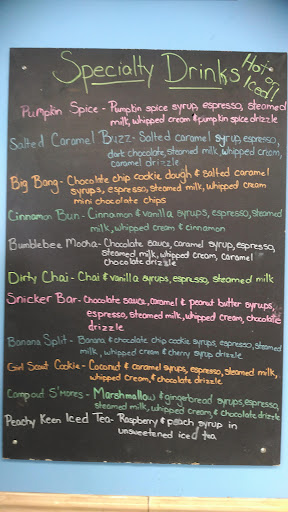 Specialty Drinks
Hot or
Iced!
Pumpkin Spice - Pumpkin spice syrup, espresso, steamed
milk, whipped cream & pumpkin spice drizzle
Salted Caramel Buzz - Salted caramel syrup, espresso,
dark chocolate, steamed milk, whipped cream,
caramel drizzle
Big Bang - Chocolate chip cookie dough & salted caramel
syrups, espresso, steamed milk, whipped cream
mini chocolate chips
Cinnamon Bun - Cinnamon & vanilla syrups, espresso, steamed
milk, whipped cream & cinnamon
Bumblebee Mocha - Chocolate sauce, caramel syrup, espresso,
steamed milk, whipped cream, caramel
chocolate drizzle
Dirty Chai - Chai & vanilla syrups, espresso, steamed milk
Snicker Bar - Chocolate sauce, caramel & peanut butter syrups,
espresso, steamed milk, whipped cream, chocolate
drizzle
Banana Split - Banana & chocolate chip cookie syrups, espresso, steamed
milk, whipped cream & cherry syrup drizzle
Girl Scout Cookie - Coconut & caramel syrups, espresso, steamed milk,
whipped cream, & chocolate drizzle
Campout S'mores - Marshmallow & gingerbread syrups, espresso,
steamed milk, whipped cream, & chocolate drizzle
Peachy Keen Iced Tea - Raspberry & peach syrup in
unsweetened iced tea